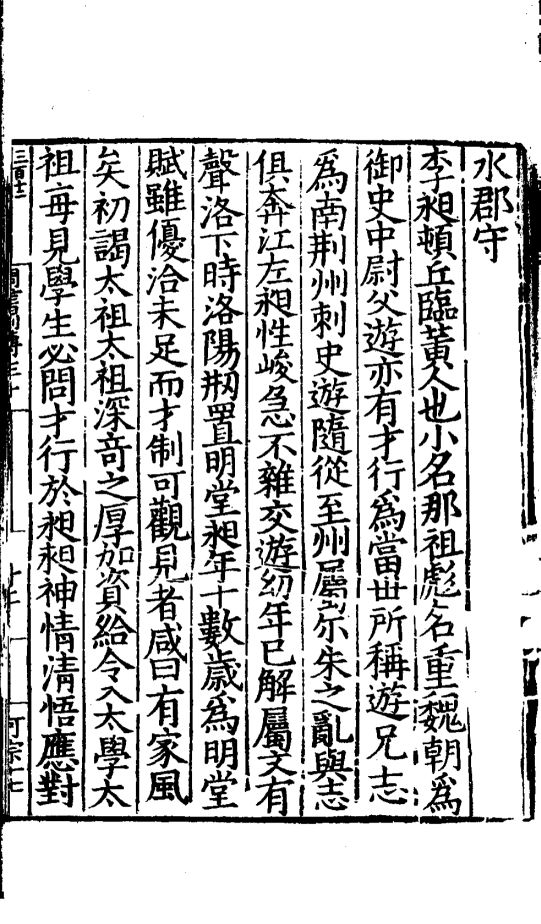 水郡守
李昶頓丘臨黄人也小名那祖彪名重魏朝爲
御史中尉父遊亦有才行爲當世所稱遊兄志
爲南荆州刺史遊隨從至州屬尒朱之亂與志
俱奔江左昶性峻急不雜交遊幼年已解屬文有
聲洛下時洛陽刱置明堂昶年十數歲爲明堂
賦雖優洽未足而才制可觀見者咸曰有家風
矣初謁太祖太祖深奇之厚加資給令入太學太
祖每見學生必問才行於昶昶神情清悟應對
三百十二